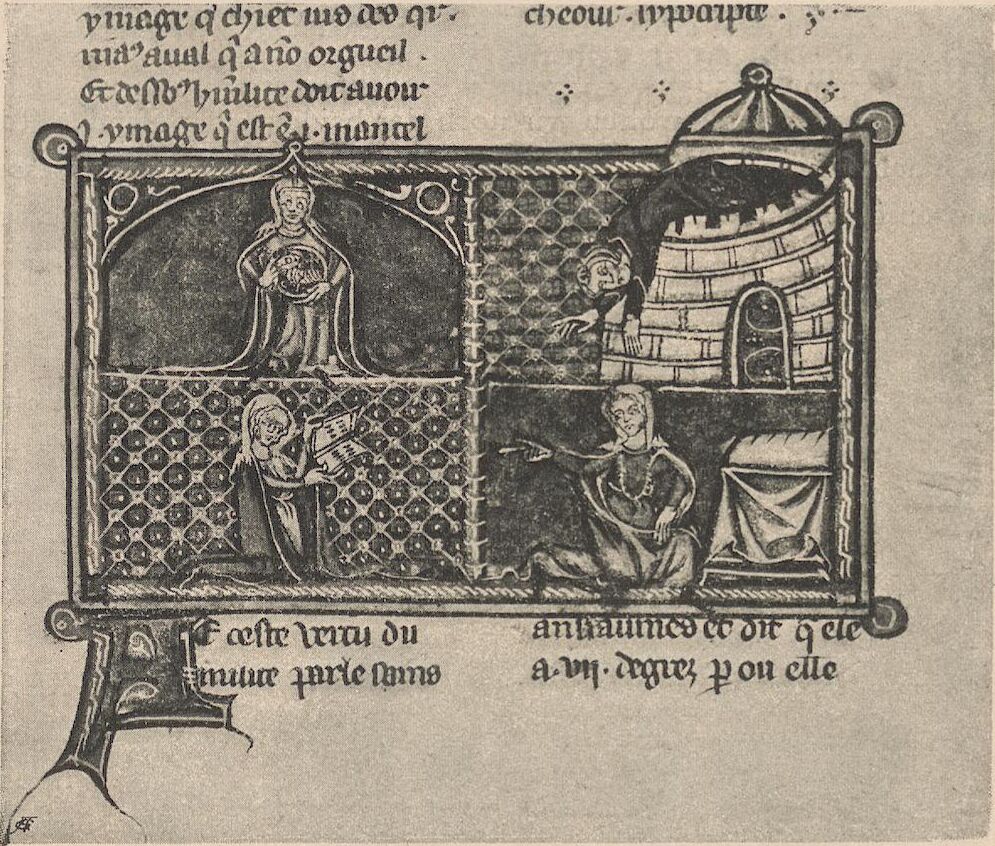 ymage q̃ chiet ius des qr̃.
ma⁹ aual q̃ a nõ orgueil.
Et dess⁹ hũilite doit auoir
ymage q̃ est ẽ .i. mantel
cheour. ypocripte.
De ceste vertu du
milite parle sains
ansaumes et dit q̃ ele
a .vij. degrez p ou elle